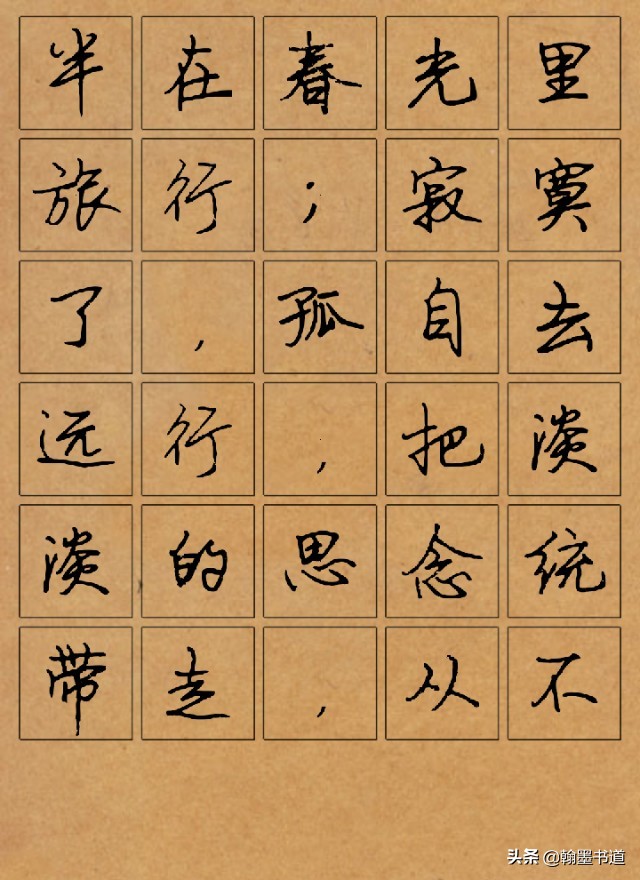 半在春光里
旅行；寂寞
了，孤自去
远行，把淡
淡的思念统
带走，从不
头条 @翰墨书道